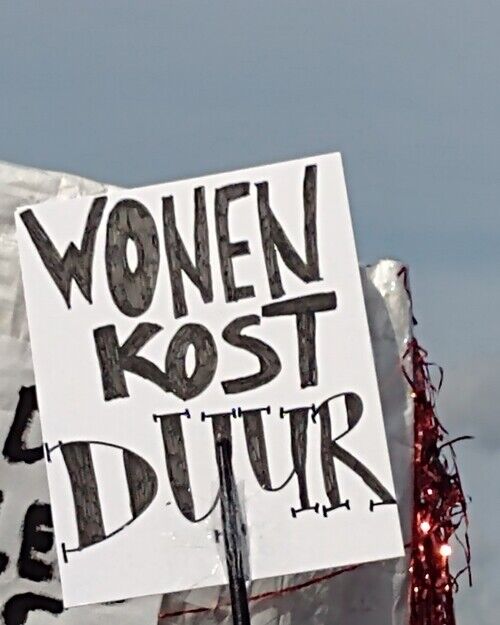 WONEN
KOST
DUUR